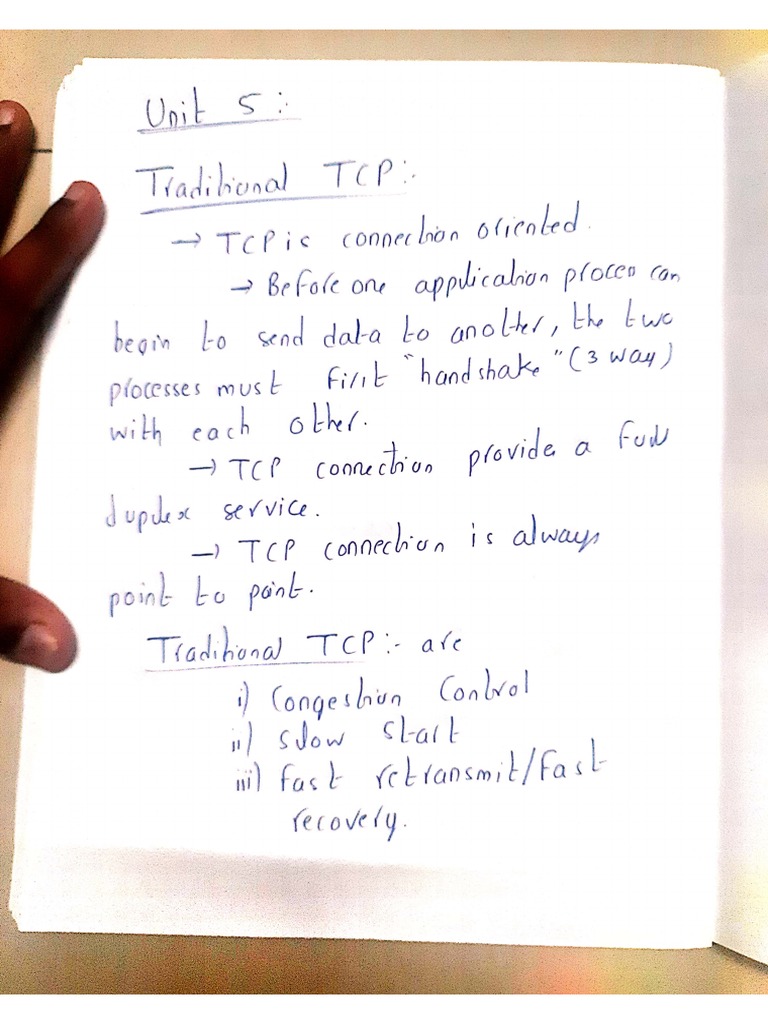 Unit 5:-
Traditional TCP:-
→ TCP is connection oriented.
→ Before one application process can
begin to send data to another, the two
processes must first "handshake" (3 way)
with each other.
→ TCP connection provide a full
duplex service.
→ TCP connection is always
point to point.
Traditional TCP:- are
i) Congestion Control
ii) Slow Start
iii) fast retransmit/fast
recovery.